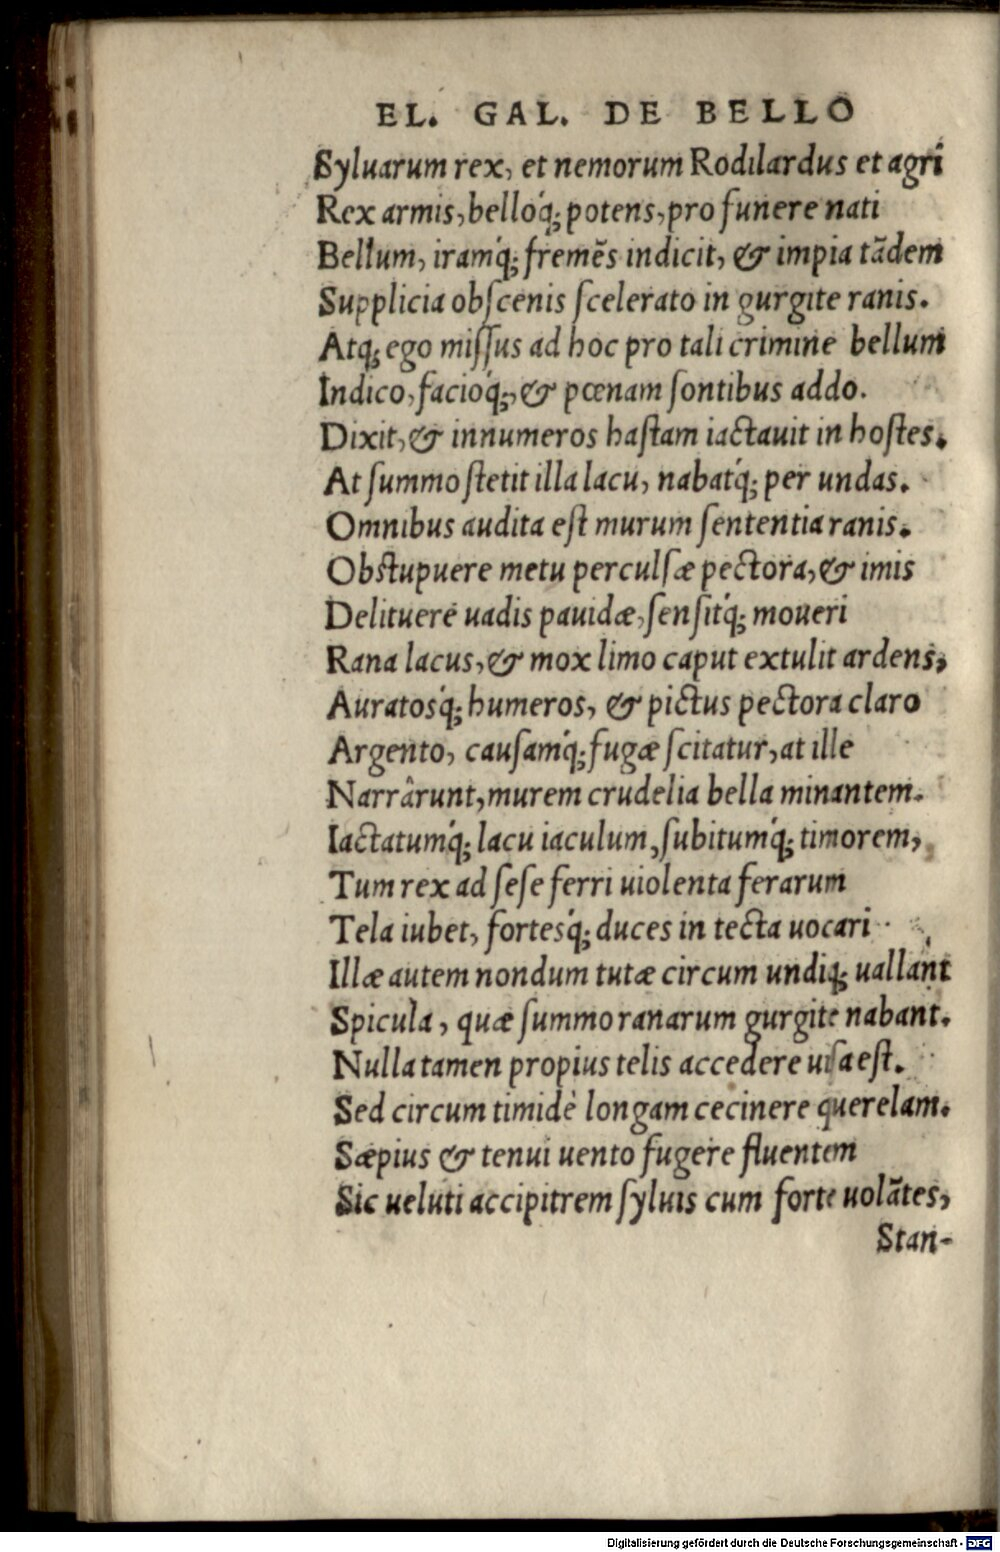 EL. GAL. DE BELLO
Syluarum rex, et nemorum Rodilardus et agri
Rex armis, belloq́; potens, pro funere nati
Bellum, iramq́; fremẽs indicit, & impia tãdem
Supplicia obſcenis ſcelerato in gurgite ranis.
Atq; ego miſſus ad hoc pro tali crimine bellum
Indico, facioq́;, & pœnam ſontibus addo.
Dixit, & innumeros haſtam iactauit in hoſtes.
At ſummo ſtetit illa lacu, nabatq́; per undas.
Omnibus audita eſt murum ſententia ranis.
Obſtupuere metu perculſæ pectora, & imis
Delituere uadis pauidæ, ſenſitq́; moueri
Rana lacus, & mox limo caput extulit ardens,
Auratosq́; humeros, & pictus pectora claro
Argento, cauſamq́; fugæ ſcitatur, at ille
Narrârunt, murem crudelia bella minantem.
Iactatumq́; lacu iaculum, ſubitumq́; timorem,
Tum rex ad ſeſe ferri uiolenta ferarum
Tela iubet, fortesq́; duces in tecta uocari
Illæ autem nondum tutæ circum undiq; uallant
Spicula, quæ ſummo ranarum gurgite nabant.
Nulla tamen propius telis accedere uiſa eſt.
Sed circum timidè longam cecinere querelam.
Sæpius & tenui uento fugere fluentem
Sic ueluti accipitrem ſyluis cum forte uolãtes,
Stan-
Digitalisierung gefördert durch die Deutsche Forschungsgemeinschaft - DFG